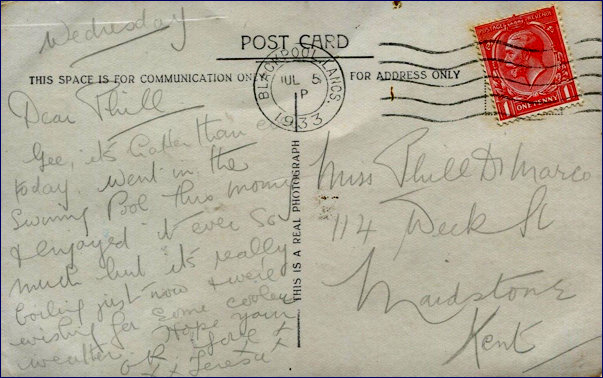 Wednesday
POST CARD
THIS SPACE IS FOR COMMUNICATION ONLY
FOR ADDRESS ONLY
BLACKPOOL LANCS.
JUL 5
1 P
1933
ONE PENNY
THIS IS A REAL PHOTOGRAPH
Dear Phill
Gee, it's hotter than
today. Went in the
Swimming Pool this morning
& enjoyed it ever so
much but it's really
boiling just now & we're
wishing for some cooler
weather. Hope you're
O.K.
Teresa
Miss Phill Di Marco
114
St
Maidstone
Kent